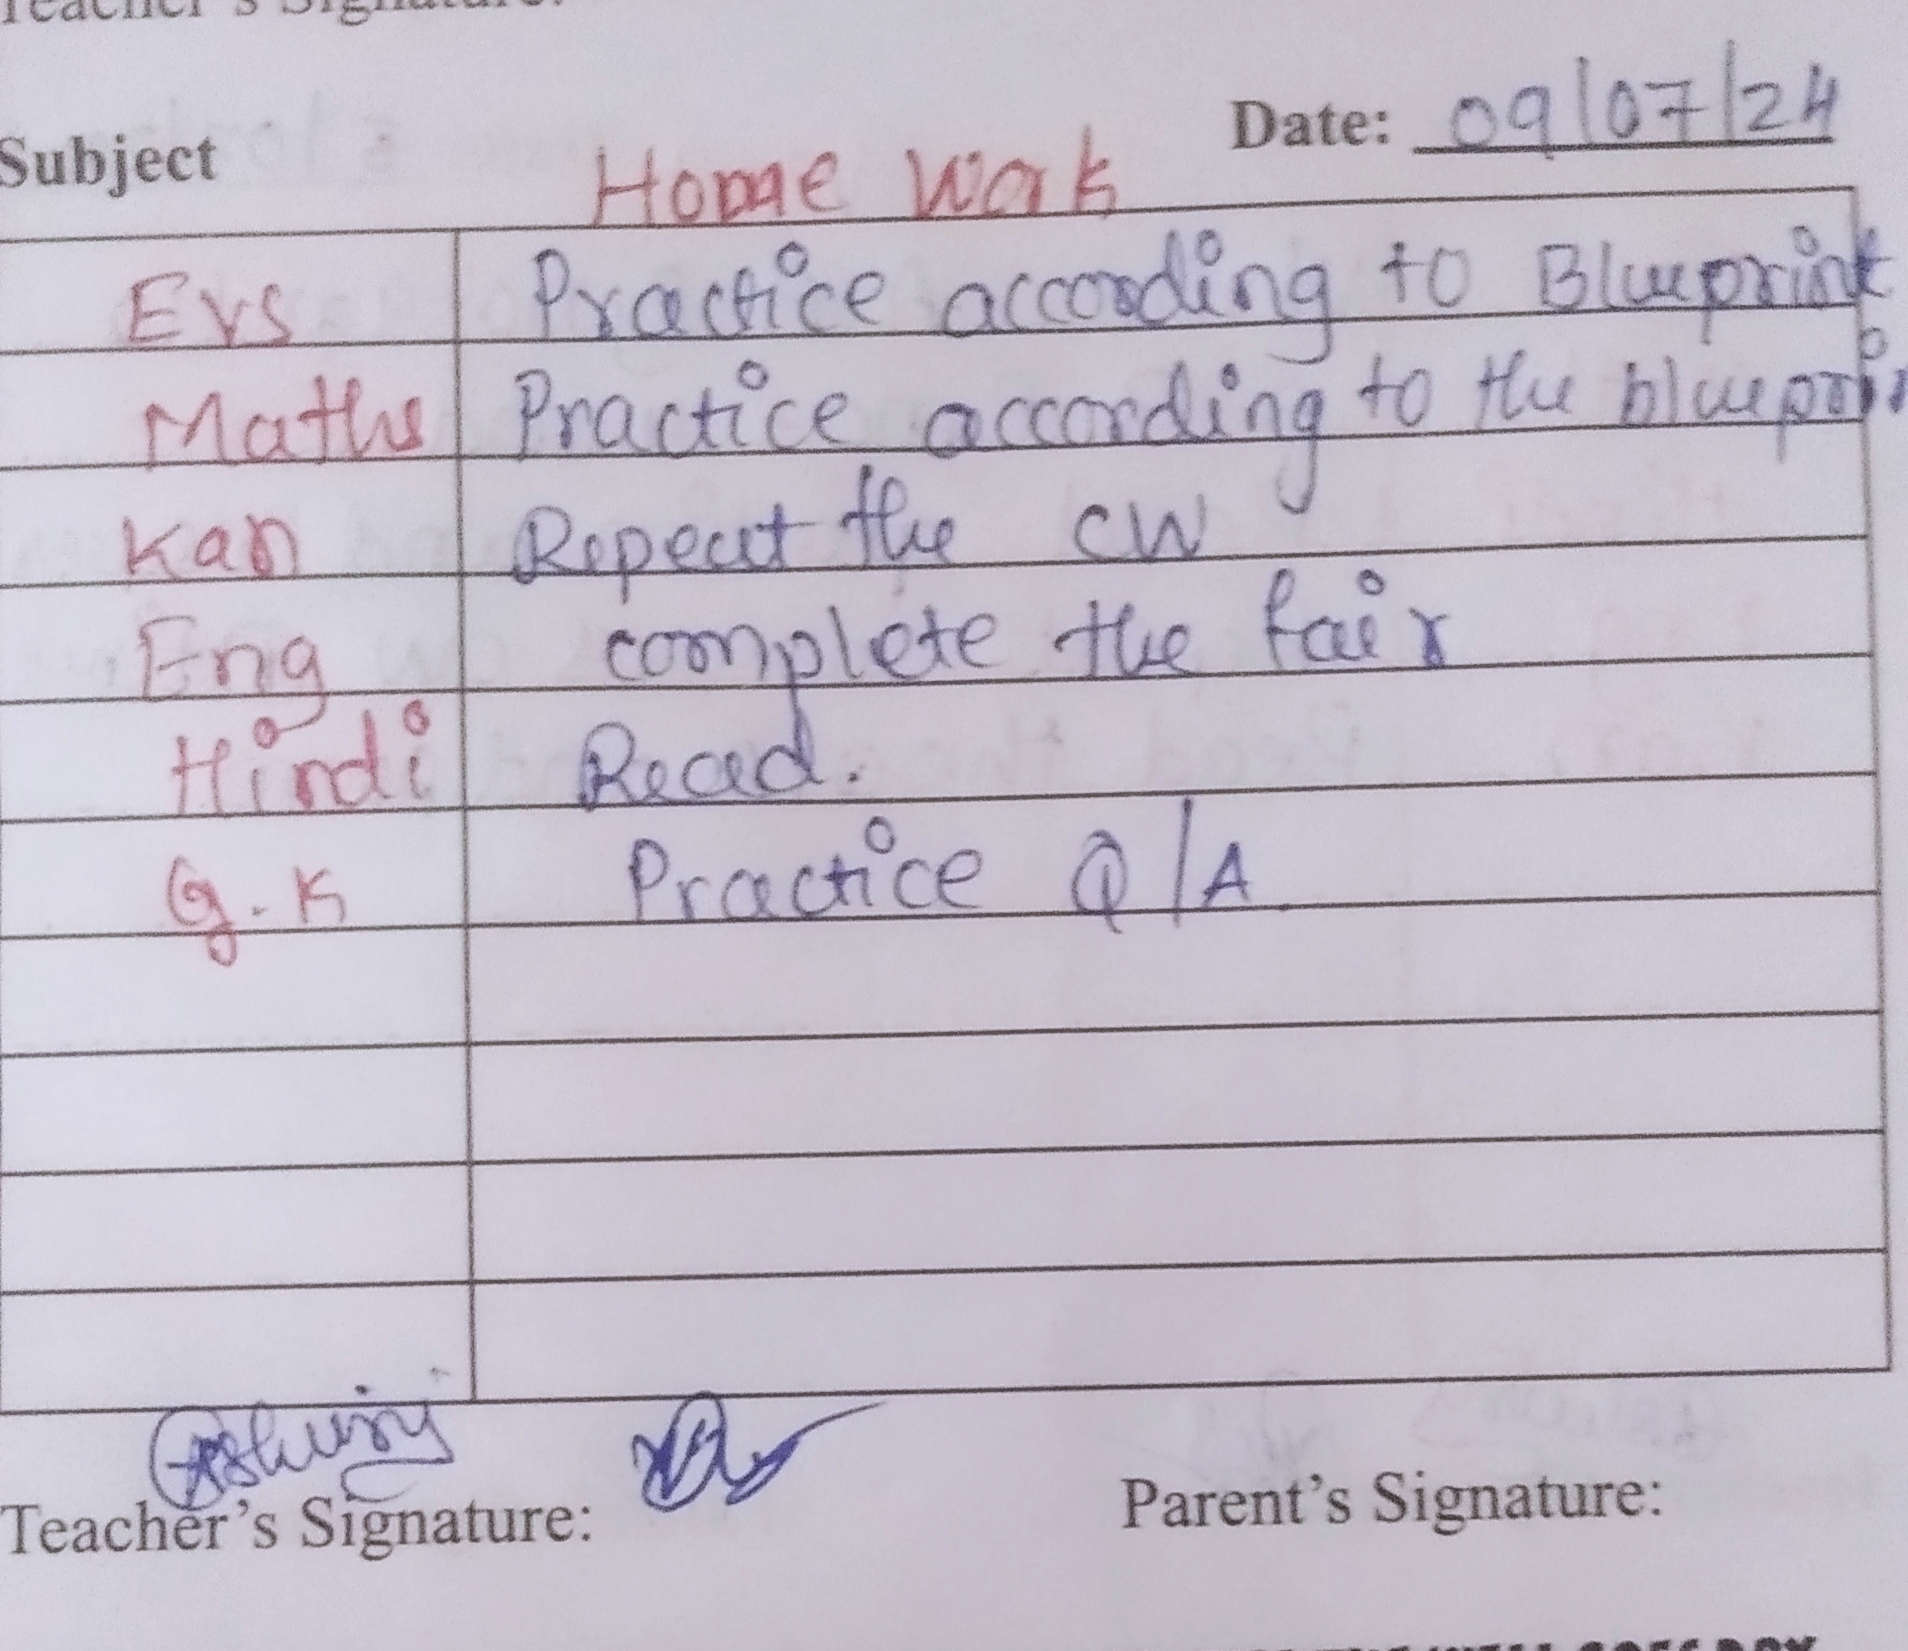 Teacher's Signature:
Subject Home Work Date: 09/07/24
Evs Practice according to Blueprint
Maths Practice according to the blueprin
Kan Repeat the CW
Eng complete the fair
Hindi Read.
G.K Practice Q/A
Teacher's Signature: Parent's Signature: